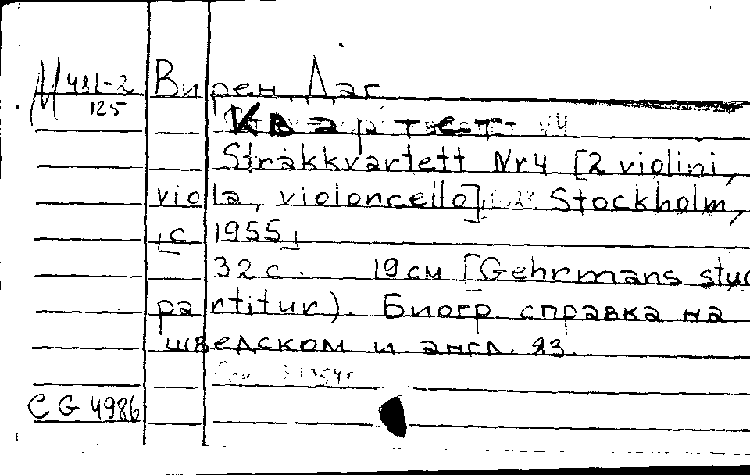 М 481-2 Вирен, Даг
125
Квартет №4
Stråkkvartett Nr4 [2 violini,
viola, violoncello]. Stockholm,
[с 1955]
32 с. 19 см [Gehrmans stud
partitur). Биогр. справка на
шведском и англ. яз.
CG 4986